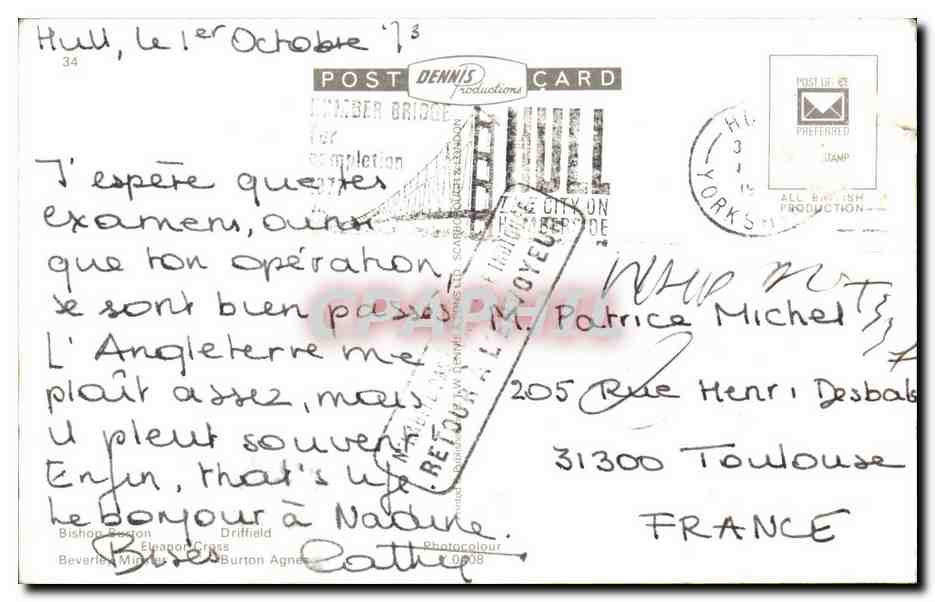 Hull, le 1er Octobre 73
34
POST CARD
DENNIS
Productions
HUMBER BRIDGE
for
completion
HULL
THE CITY ON
HUMBERSIDE
POST OFFICE
PREFERRED
STAMP
ALL BRITISH
PRODUCTION
YORKS
J'espère que tes
examens, ainsi
que ton opération,
se sont bien passés
L'Angleterre me
plaît assez, mais
il pleut souvent
Enfin, that's life
Le bonjour à Nadine.
Bises Cathy
M. Patrice Michel
205 Rue Henri Desbals
31300 Toulouse
FRANCE
RETOUR A L'ENVOYEUR
CPAPHIL
Bishop Burton Driffield
Eleanor Cross
Beverley Minster Burton Agnes
Photocolour